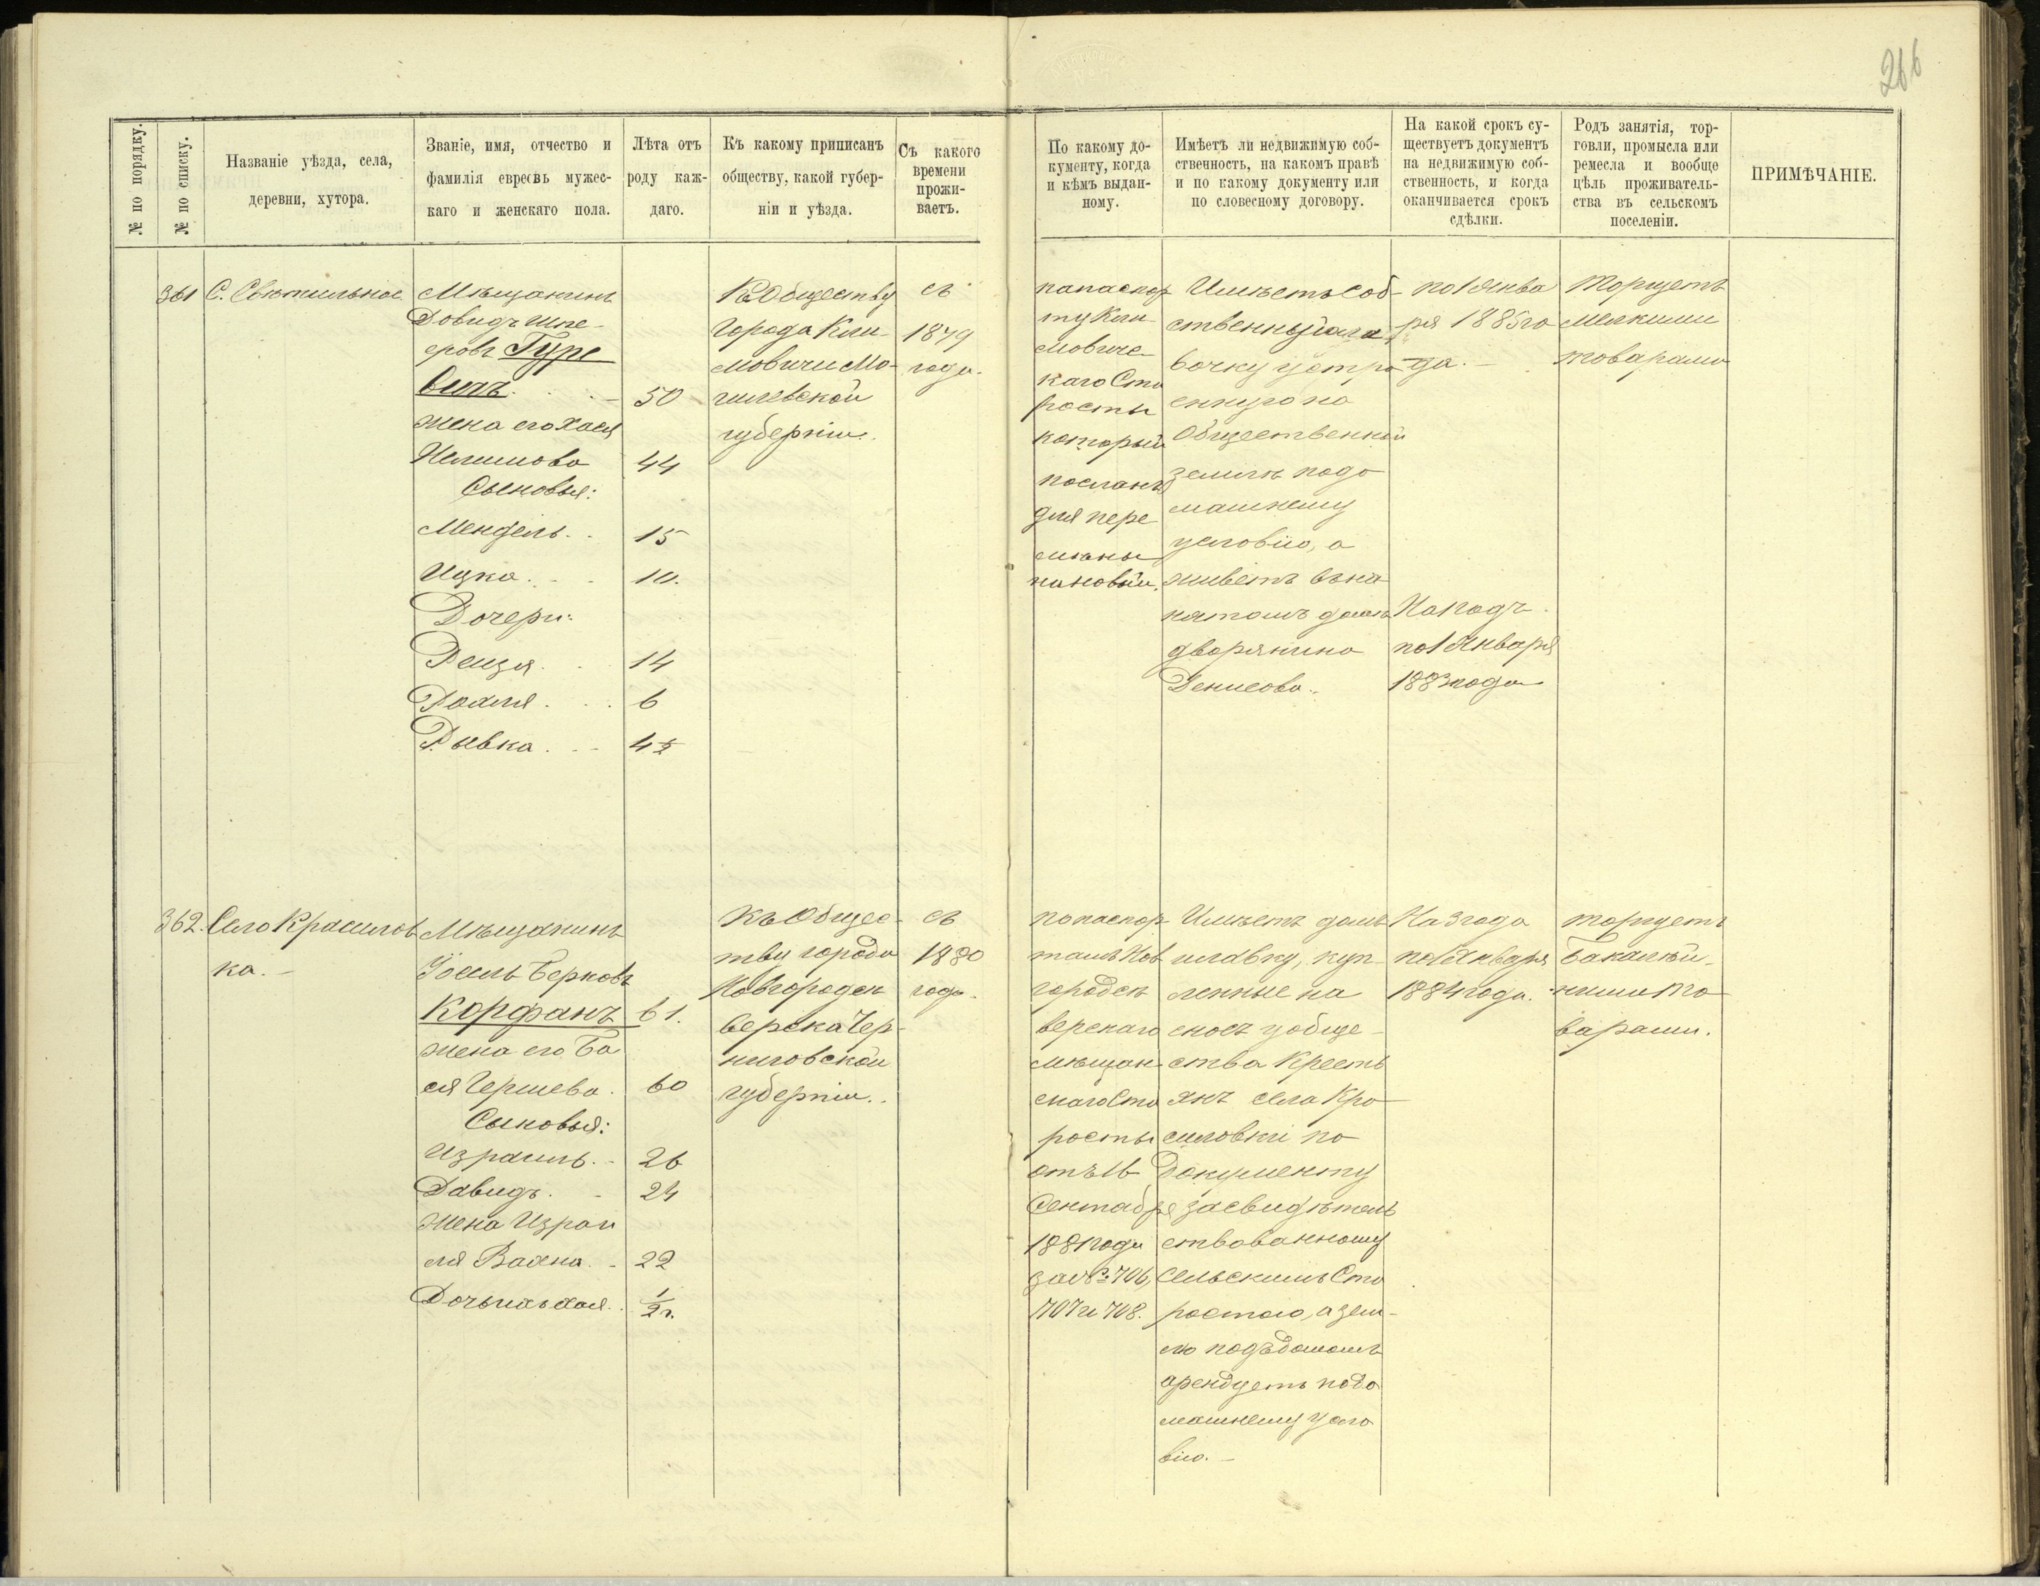 266
№ по порядку.
№ по списку.
Названіе уѣзда, села,
деревни, хутора.
Званіе, имя, отчество и
фамилія евреевъ мужес-
каго и женскаго пола.
Лѣта отъ
роду каж-
даго.
Къ какому приписанъ
обществу, какой губер-
ніи и уѣзда.
Съ какого
времени
прожи-
ваетъ.
По какому до-
кументу, когда
и кѣмъ выдан-
ному.
Имѣетъ ли недвижимую соб-
ственность, на какомъ правѣ
и по какому документу или
по словесному договору.
На какой срокъ су-
ществуетъ документъ
на недвижимую соб-
ственность, и когда
оканчивается срокъ
сдѣлки.
Родъ занятія, тор-
говли, промысла или
ремесла и вообще
цѣль проживатель-
ства въ сельскомъ
поселеніи.
ПРИМѢЧАНІЕ.
361
С. Свѣтильное
Мѣщанинъ
Довидъ Шле-
еровъ Гуре
вичъ. 50
жена его Хася
44
Сыновья:
Мендель. 15
Ицка. 10.
Дочери:
14
6
Рывка. 4½
Къ Обществу
города Кли-
мовичи Мо-
гилевской
губерніи.
съ
1879
года.
папаспор
ту Кли
мовиче
каго Ста
росты
который
посланъ
для пере
мѣны
на новый.
Имѣетъ соб-
ственную ла
вочку устро
енную на
Общественной
землѣ по до
машнему
условію, а
живетъ въ на
нятомъ домѣ
дворянина
Денисова.
по 1 Янва
ря 1885 го
да.
На годъ
по 1 Января
1883 года
Торгуетъ
мелкими
товарами
362.
Село Красилов
ка.
Мѣщанинъ
Іосель Берковъ
Корфанъ 61.
жена его Ба
ся Гершева. 60
Сыновья:
Израиль. 26
Давидъ. 24
жена Израи
ля 22
Дочь ихъ Хая. ½ г.
Къ Общес-
тву города
Новгородск
Верска Чер-
ниговской
губерніи.
съ
1880
года.
по паспор
тамъ Нов
городсѣ
верскаго
мѣщан-
скаго Ста
росты
отъ 16
Сентабря
1881 года
за № 706,
707 и 708.
Имѣетъ домъ
и лавку, куп-
ленные на
сносъ у обще-
ства Кресть
янъ села Кра
силовки по
Документу
засвидѣтель
ствованному
Сельскимъ Ста
ростою, а зем-
лю подъ домомъ
арендуетъ по до
машнему усло
вію.
На 3 года
по 1 Января
1884 года.
торгуетъ
Бакалѣй-
ными то
варами.